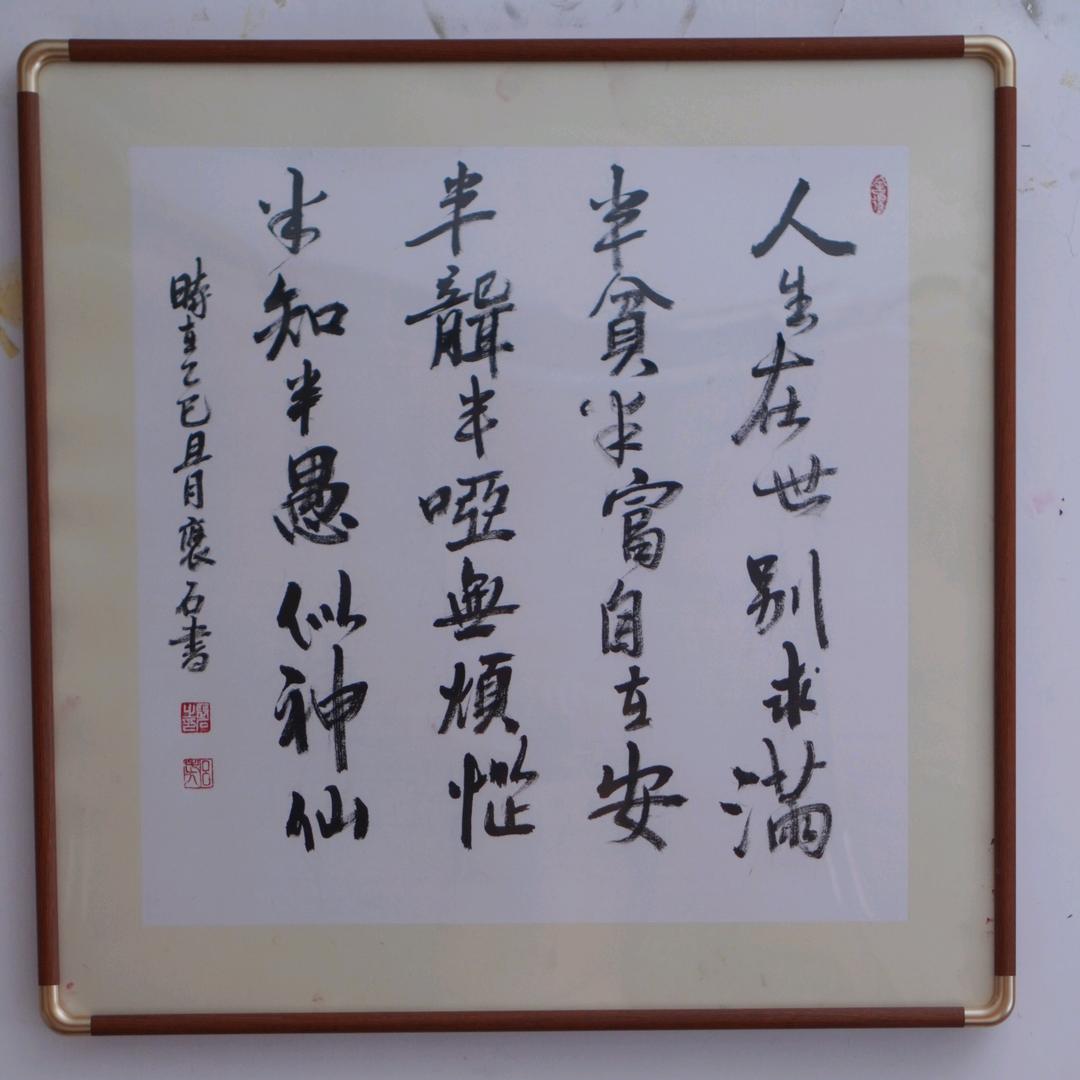 人生在世别求满
半贫半富自在安
半聋半哑無煩惱
半知半愚似神仙
時在乙巳且月褒石書